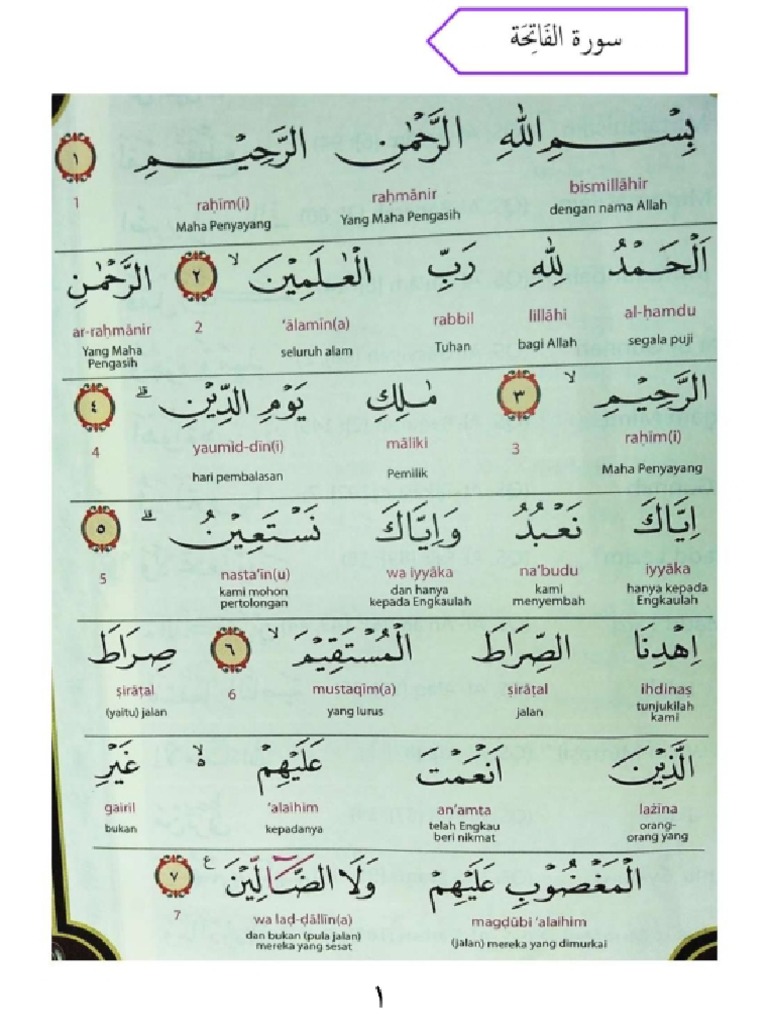 سورة الفَاتِحَة
بِسْمِ اللهِ الرَّحْمٰنِ الرَّحِيْمِ ١
bismillāhir raḥmānir raḥīm(i) 1
dengan nama Allah Yang Maha Pengasih Maha Penyayang
اَلْحَمْدُ لِلهِ رَبِّ الْعٰلَمِيْنَۙ ٢ الرَّحْمٰنِ
al-ḥamdu lillāhi rabbil ‘ālamīn(a) 2 ar-raḥmānir
segala puji bagi Allah Tuhan seluruh alam Yang Maha Pengasih
الرَّحِيْمِۙ ٣ مٰلِكِ يَوْمِ الدِّيْنِۗ ٤
raḥīm(i) 3 māliki yaumid-dīn(i) 4
Maha Penyayang Pemilik hari pembalasan
اِيَّاكَ نَعْبُدُ وَاِيَّاكَ نَسْتَعِيْنُۗ ٥
iyyāka na‘budu wa iyyāka nasta‘īn(u) 5
hanya kepada Engkaulah kami menyembah dan hanya kepada Engkaulah kami mohon pertolongan
اِهْدِنَا الصِّرَاطَ الْمُسْتَقِيْمَۙ ٦ صِرَاطَ
ihdinaṣ ṣirāṭal mustaqīm(a) 6 ṣirāṭal
tunjukilah kami jalan yang lurus (yaitu) jalan
الَّذِيْنَ اَنْعَمْتَ عَلَيْهِمْ ەۙ غَيْرِ
lażīna an‘amta ‘alaihim gairil
orang-orang yang telah Engkau beri nikmat kepadanya bukan
الْمَغْضُوْبِ عَلَيْهِمْ وَلَا الضَّاۤلِّيْنَ ع ٧
magḍūbi ‘alaihim wa laḍ-ḍāllīn(a) 7
(jalan) mereka yang dimurkai dan bukan (pula jalan) mereka yang sesat
١